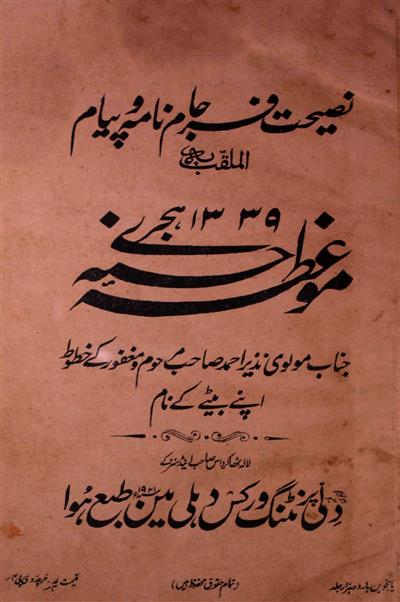 نصیحت فرجام نامہ و پیام
الملقب بہ
۱۳۳۹ ہجری
موعظہ حسنہ
جناب مولوی نذیر احمد صاحب مرحوم و مغفور کے خطوط
اپنے بیٹے کے نام
لالہ ٹھاکر داس صاحب اینڈ سنز کے
دلی پرنٹنگ ورکس دہلی میں ۱۹۲۱ طبع ہوا
پانچویں بار دو ہزار جلد
(تمام حقوق محفوظ ہیں)
قیمت